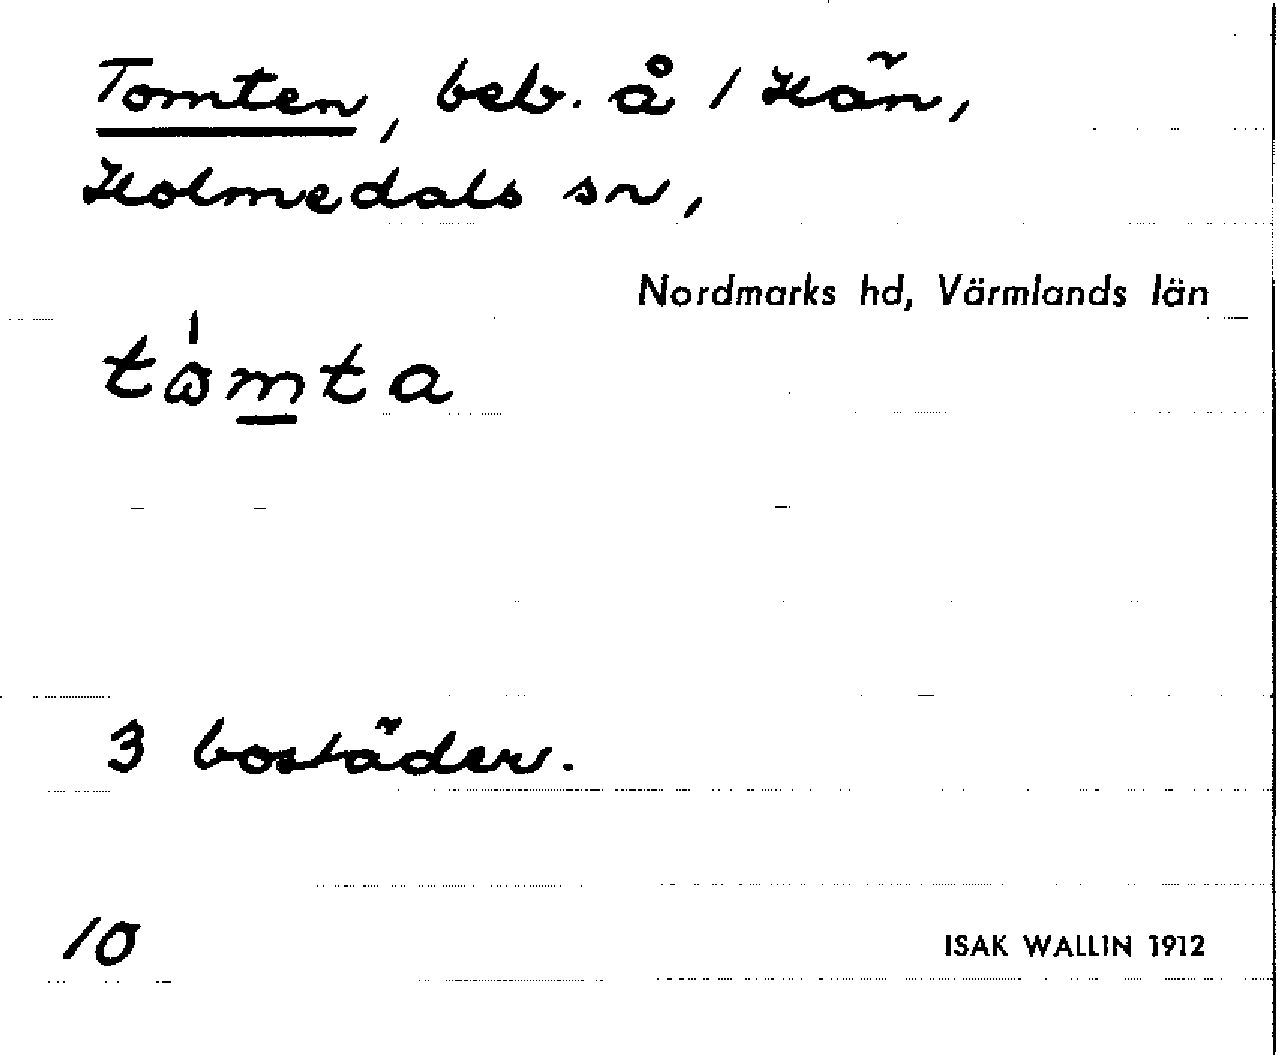 Tomten, beb. å 1 Hän,
Holmedals sn,
Nordmarks hd, Värmlands län
tòmta
3 bostäder.
10
ISAK WALLIN 1912